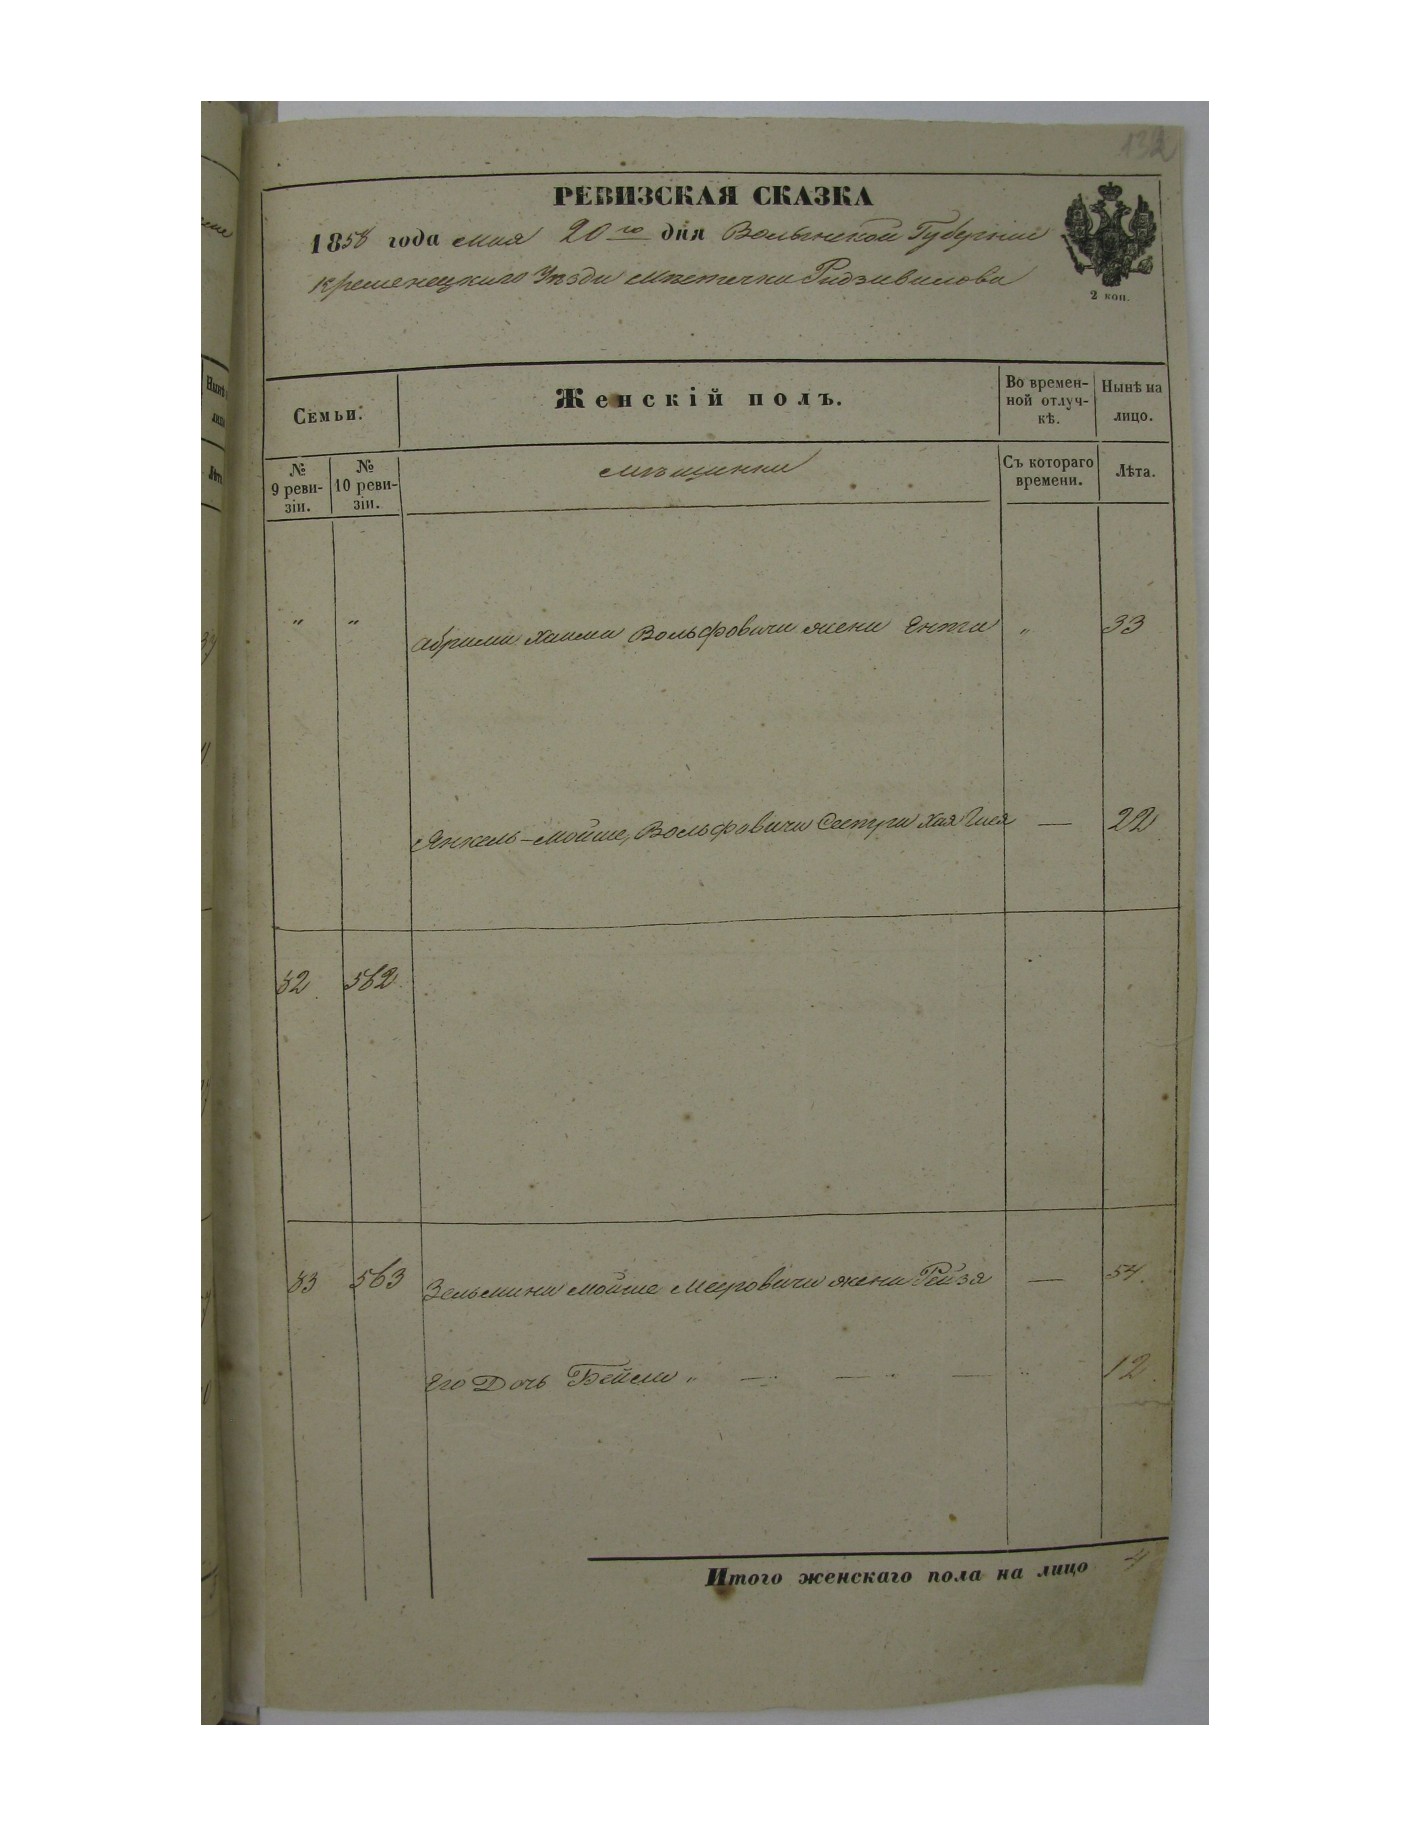 132
РЕВИЗСКАЯ СКАЗКА
1858 года мая 20го дня Волынской Губернии
Кременецкаго Уезда Местечка Радзивилова
2 коп.
Семьи.
Женскій полъ.
Во времен-
ной отлуч-
кѣ.
Нынѣ на
лицо.
№
9 реви-
зіи.
№
10 реви-
зіи.
мѣщанки
Съ котораго
времени.
Лѣта.
" " Абрама Хаима Вольфовича жена Ента " 33
Янкель-Мойше, Вольфовича Сестра Хая — 22
82 562
83 563 Зельмана Мойше Мееровича жена Рейзя — 54.
Его Дочь Бейла " — — — 12.
Итого женскаго пола на лицо 4